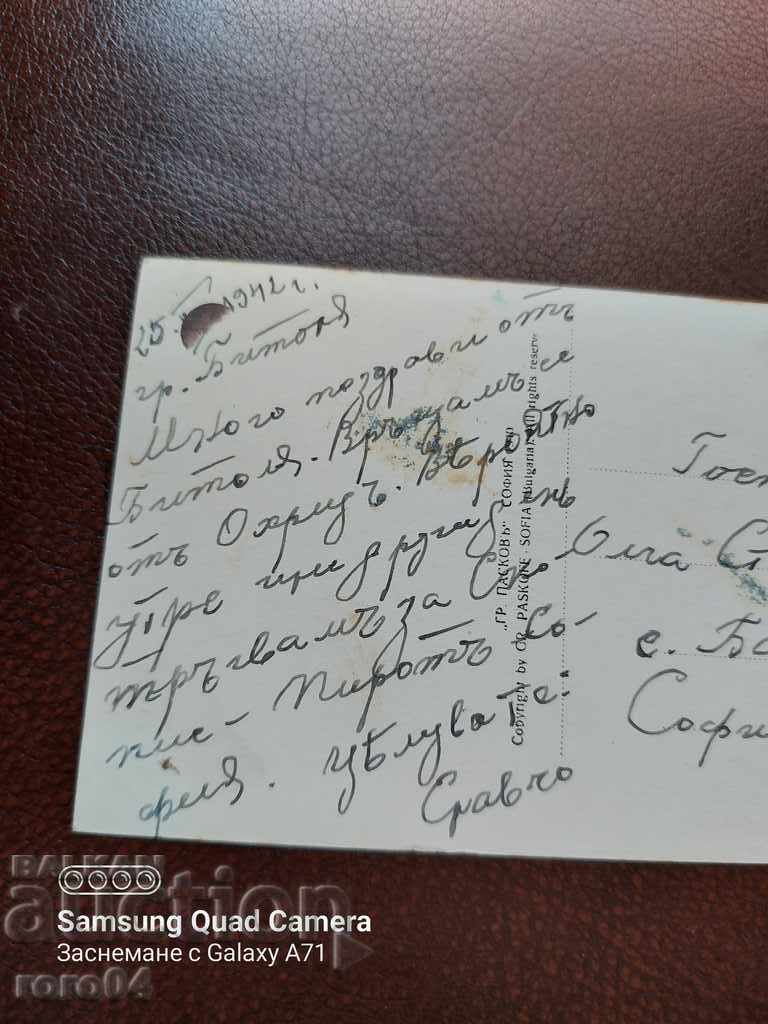 25. 1942 г.
гр. Битоля
Много поздрави отъ
Битоля. Връщамъ се
отъ Охридъ. Вѣроятно
утре или други день
тръгвамъ за Ско-
пие - Пиротъ Со-
фия. Цѣлува те:
Славчо
„ГР. ПАСКОВЪ" СОФИЯ
Copyright by GR. PASKOFF - SOFIA (Bulgaria). All rights reserv
Гос
Олга С
с. Ба
Софи
BALKAN
auction
roro04
Samsung Quad Camera
Заснемане с Galaxy A71